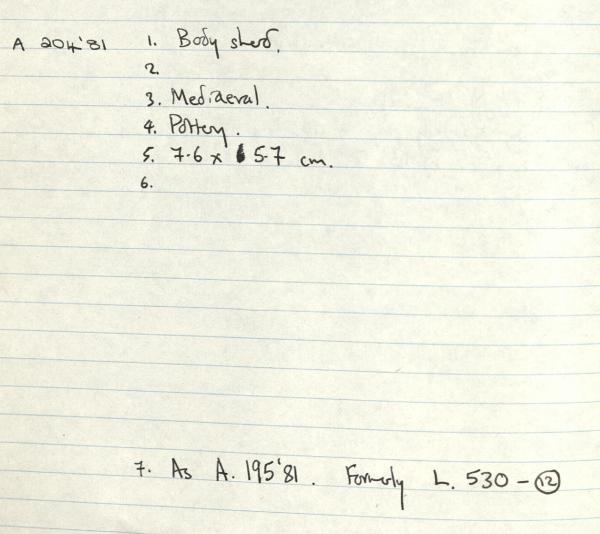 A 204'81 1. Body sherd.
2.
3. Mediaeval.
4. Pottery.
5. 7.6 x 5.7 cm.
6.
7. As A. 195'81. Formerly L. 530 - 12